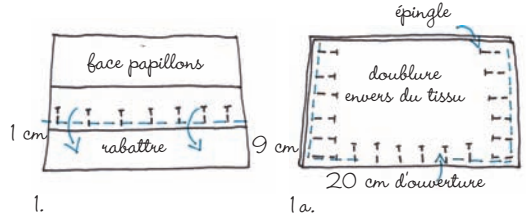 face papillons
1 cm
rabattre
1.
épingle
doublure
envers du tissu
9 cm
20 cm d'ouverture
1a.